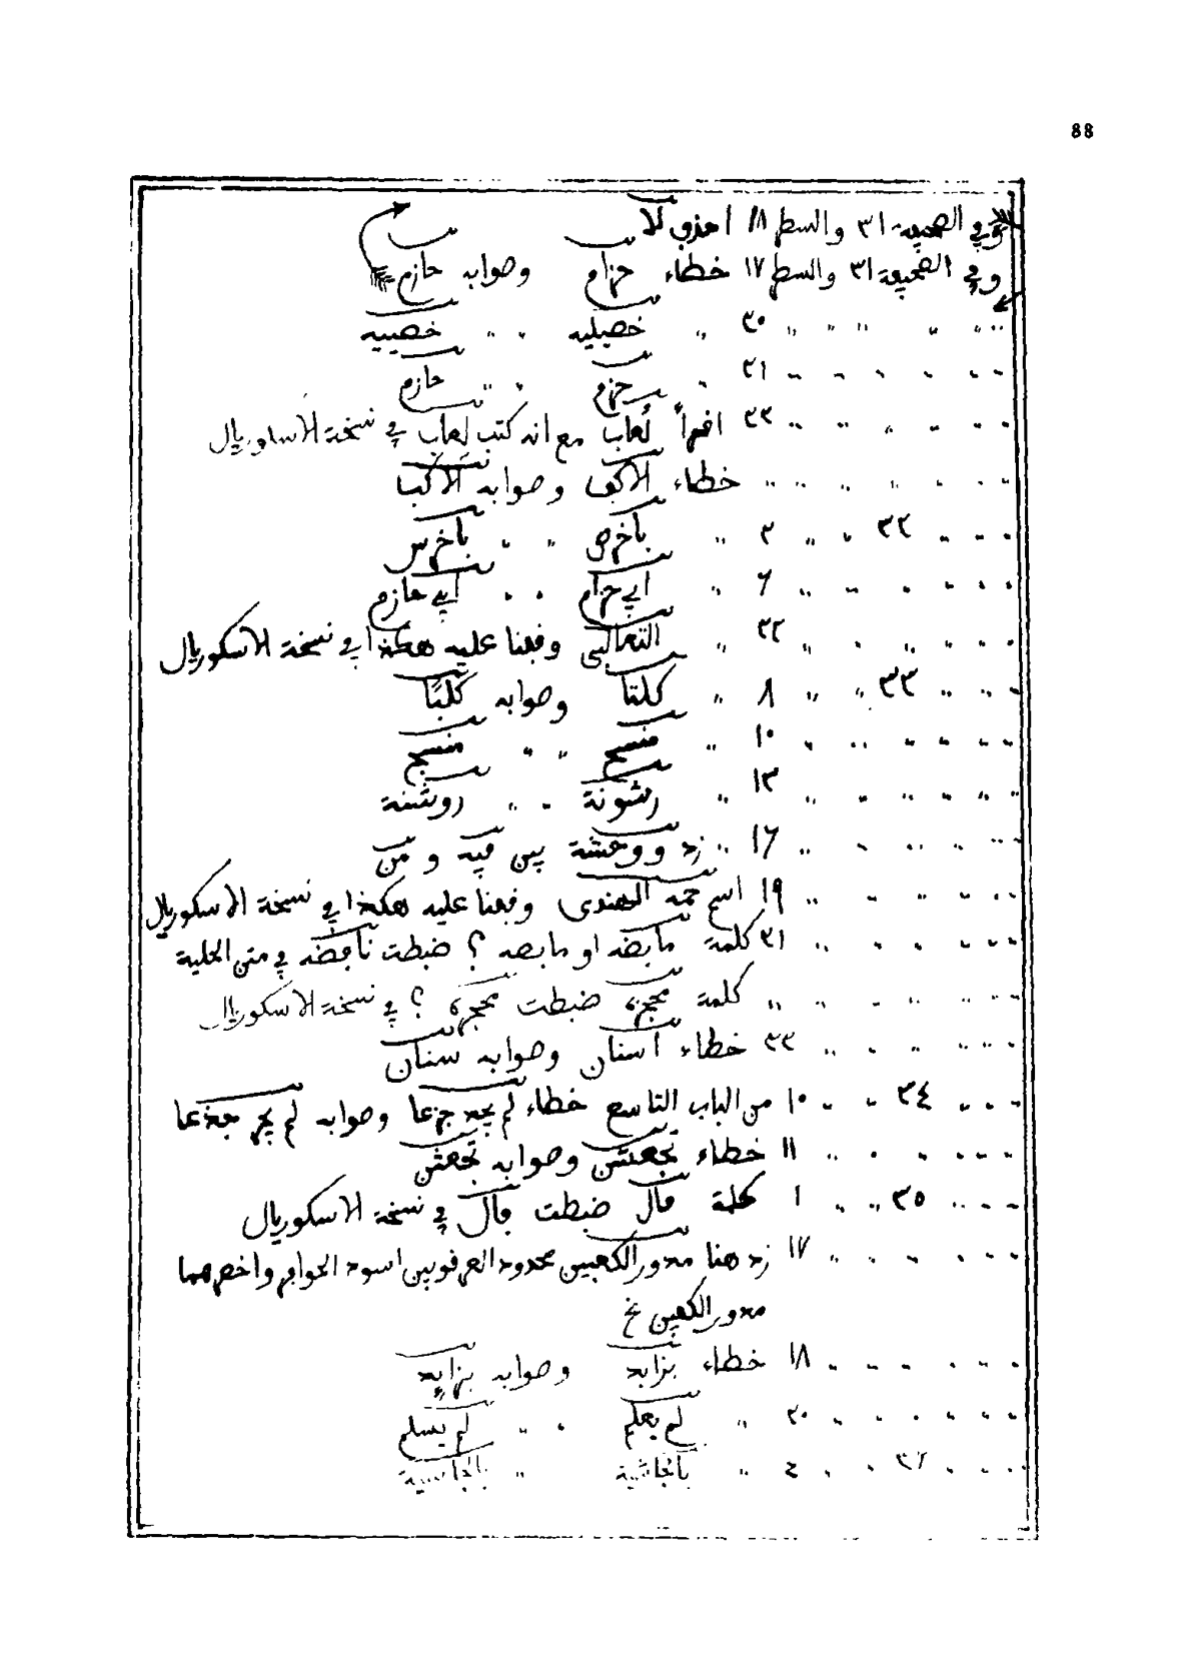 88
وفي الصحيفة ٣١ والسطر ١١ احذف لا
وفي الصحيفة ٣١ والسطر ١٧ خطاء حزام وصوابه حازم
" " " " " " ٣٠ " خصيليه " " خصيبيه
" " " " " " ٣١ " حزم " " حازم
" " " " " " ٣٣ اقرأ لُعاب مع انه كتب لِعاب في نسخة الاسكوريال
" " " " " " " خطاء الاكف وصوابه الأكبا
" " " ٣٢ " " ٣ " باخرص " " باخرس
" " " " " " ٦ " ابي حزام " " ابي حازم
" " " " " " ٢٢ " الثعالبي وقفنا عليه هكذا في نسخة الاسكوريال
" " " ٣٣ " " ٨ " كلتا وصوابه كلبًا
" " " " " " ١٠ " منسح " " منسج
" " " " " " ١٣ " رشونة " " روشنة
" " " " " " ١٦ " زد ووحشة بين فيه و من
" " " " " " ١٩ اسم حمه الهندى وقفنا عليه هكذا في نسخة الاسكوريال
" " " " " " ٢١ كلمة مابضه او مابصه ؟ ضبطت ناقضه في متن الحلية
" " " " " " " كلمة ضبطت ؟ في نسخة الاسكوريال
" " " " " " ٢٣ خطاء اسنان وصوابه سنان
" " " ٣٤ " " ١٠ من الباب التاسع خطاء لم يجد جزعا وصوابه لم يجر جذعا
" " " " " " ١١ خطاء وصوابه
" " " ٣٥ " " ١ كلمة قال ضبطت فال في نسخة الاسكوريال
" " " " " " ١٧ زد هنا مدور الكعبين محدود العرقوبين اسود الحوافر واخصرهما
مدور الكعبين نخ
" " " " " " ١٨ خطاء بزابد وصوابه بزايد
" " " " " " ٢٠ " لم يعلم " " لم يسلم
" " " ٣٦ " " ٤ " بالجاشية " " بالجاسية